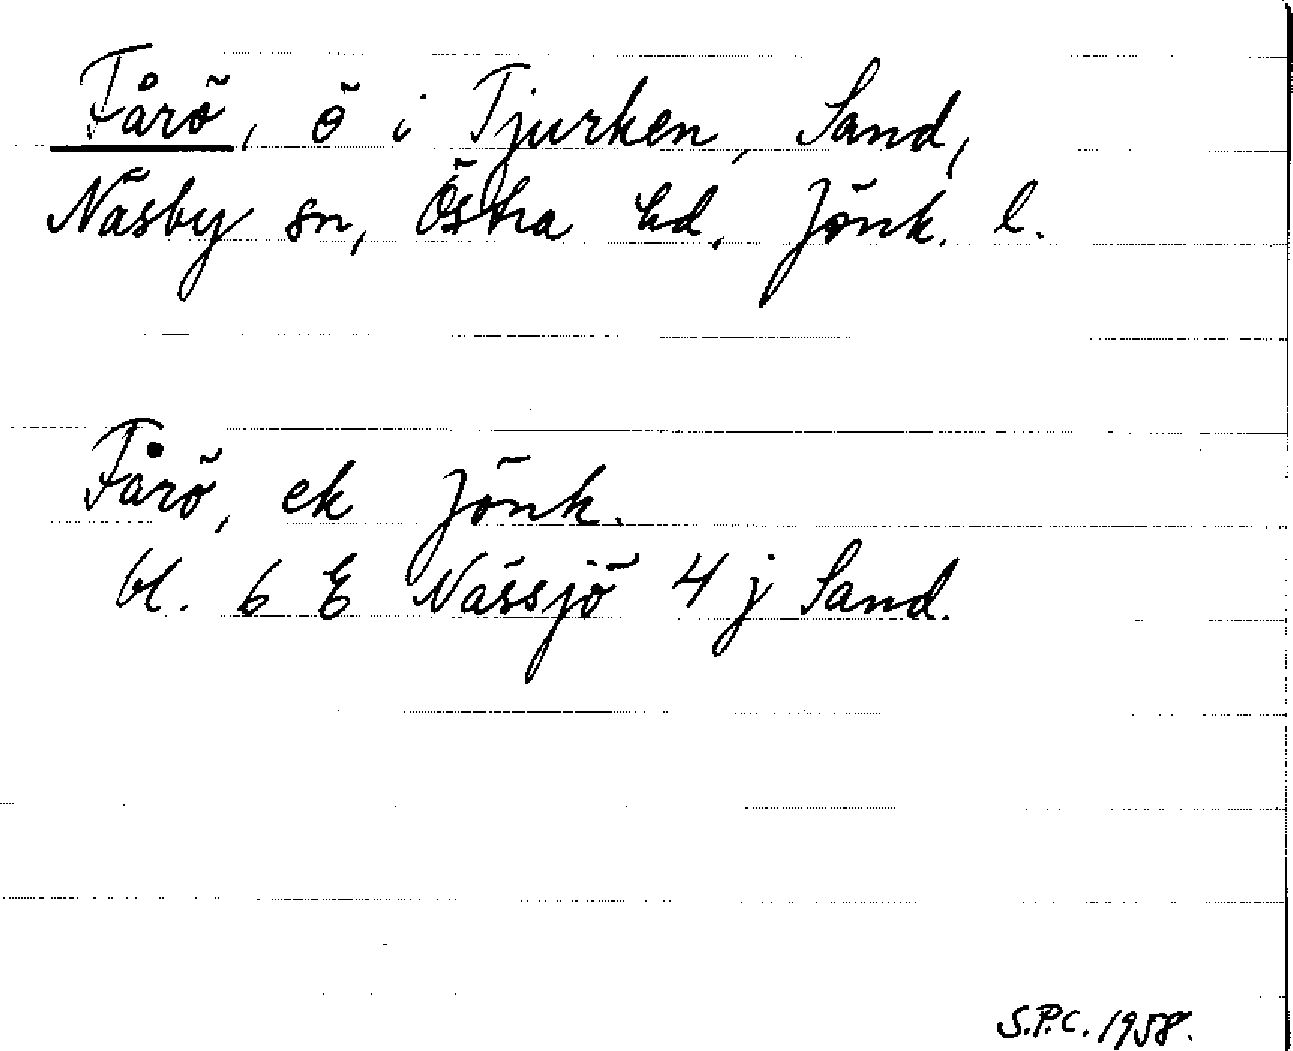 Fårö, ö i Tjurken, Sand,
Näsby sn, Östra hd. Jönk. l.
Fårö, ek Jönk.
bl. 6 E Nässjö 4 j Sand.
S.P.C. 1958.